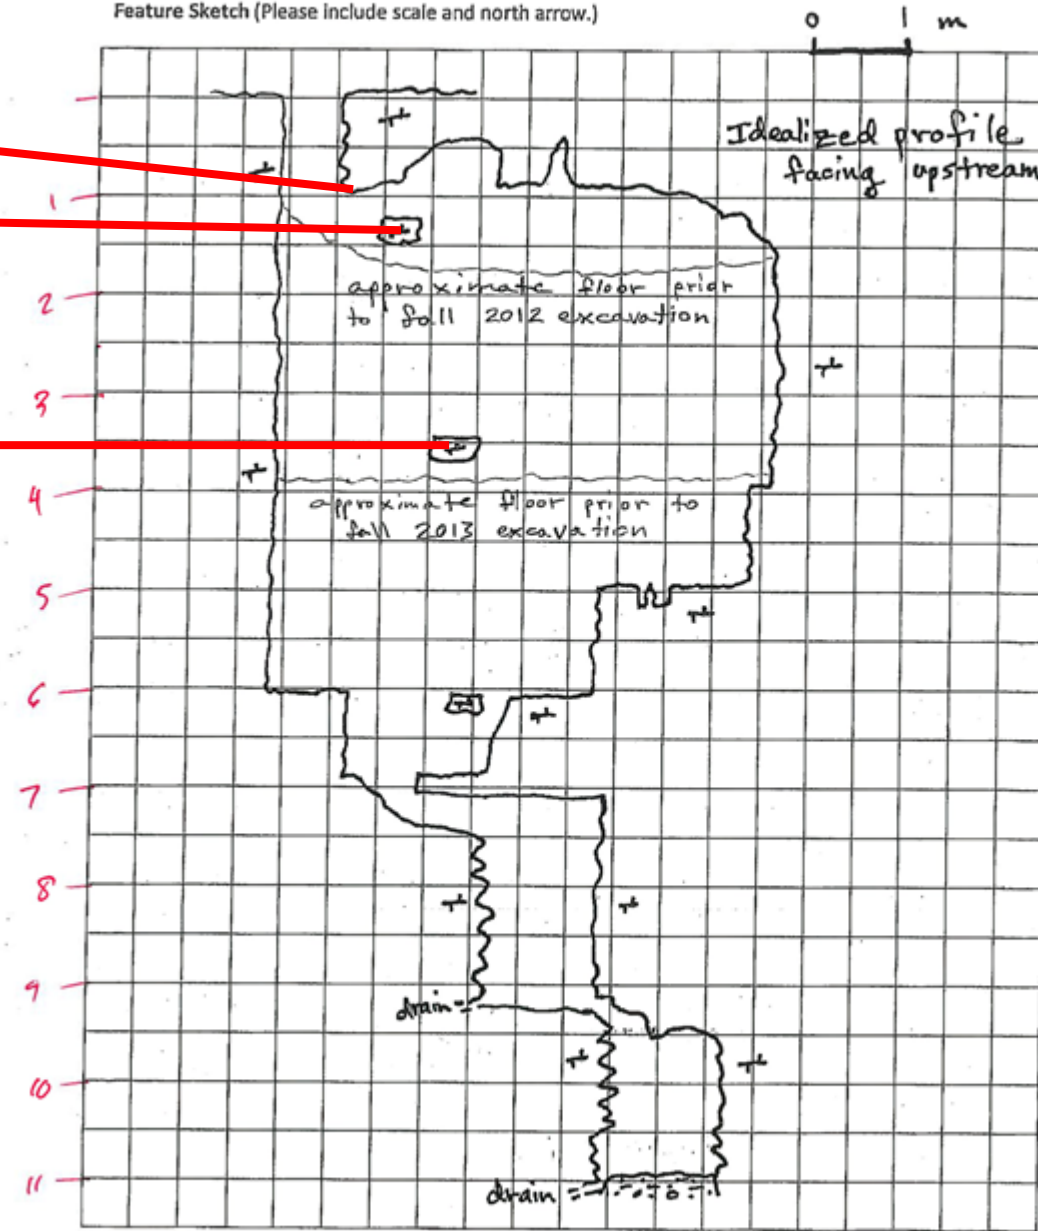 Feature Sketch (Please include scale and north arrow.)
0 1 m
Idealized profile
facing upstream
1
approximate floor prior
to fall 2012 excavation
2
3
4
approximate floor prior to
fall 2013 excavation
5
6
7
8
9
drain
10
11
drain